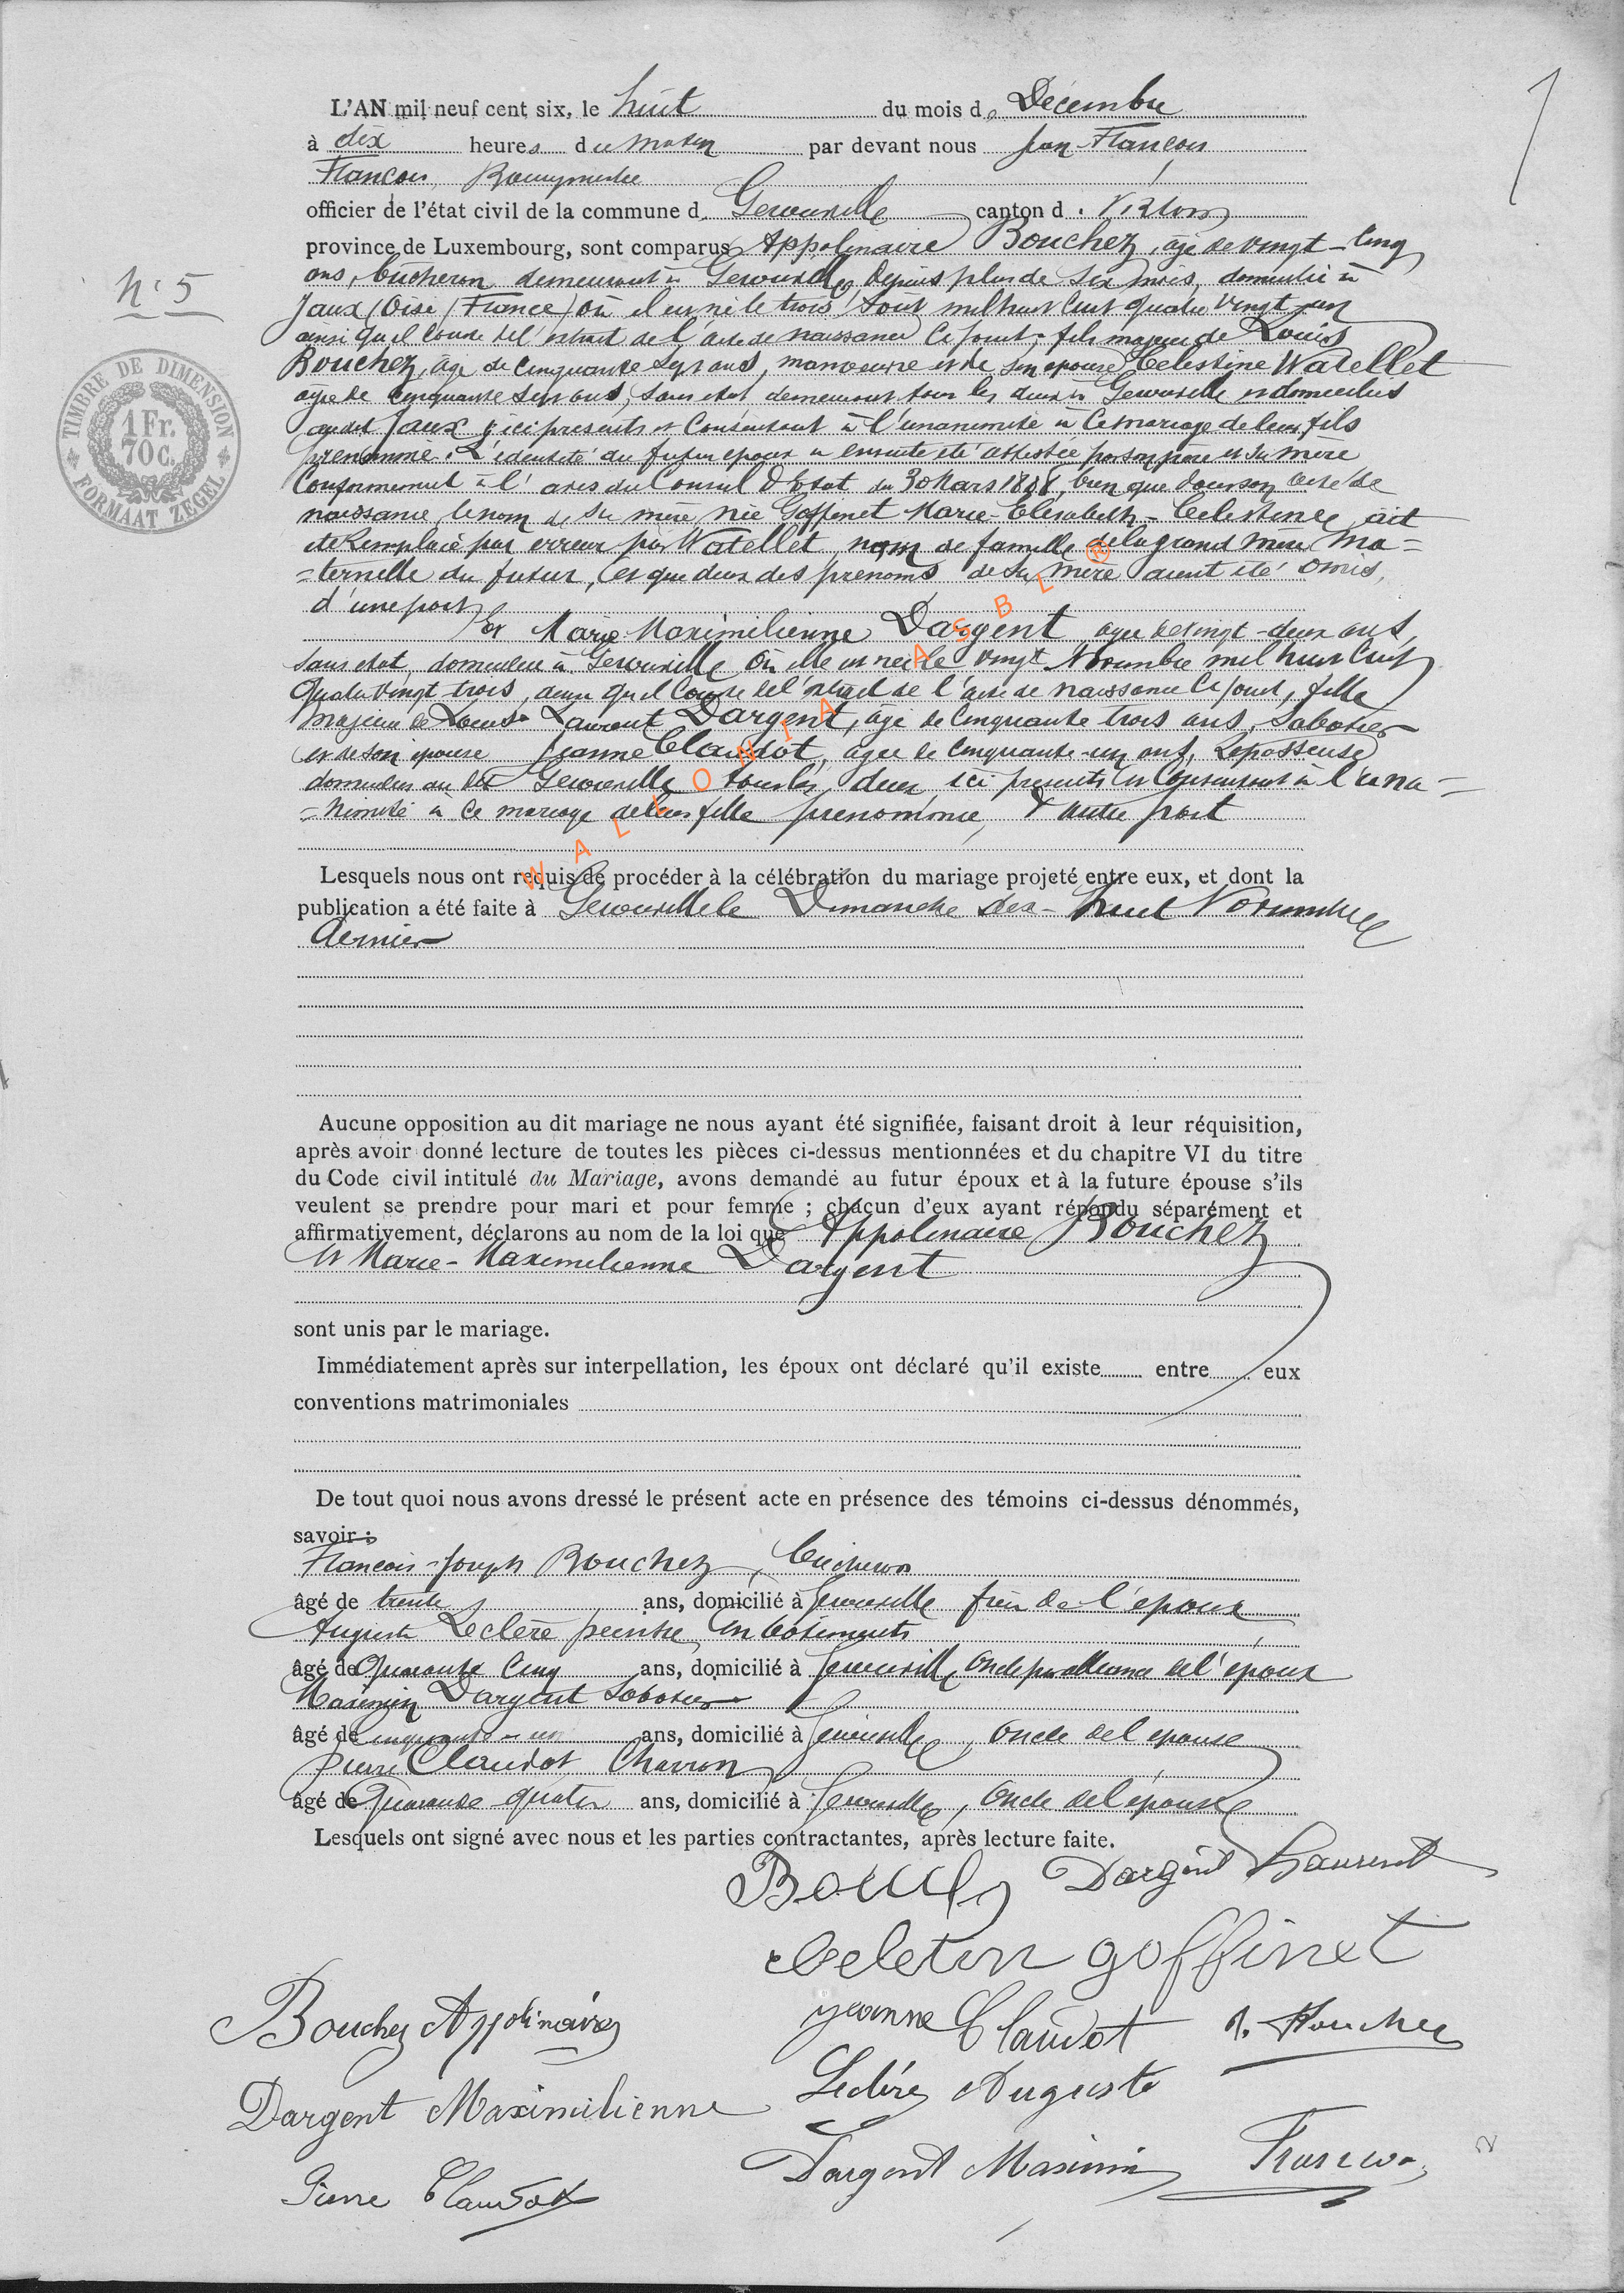 1
L'AN mil neuf cent six, le huit du mois de Décembre
à dix heures du matin par devant nous Jean-François
François, Bourgmestre
officier de l'état civil de la commune d. Gerouville canton d. Virton
N° 5
province de Luxembourg, sont comparus Appolinaire Bouchez, âgé de vingt-cinq
ans, bucheron demeurant à Gerouville depuis plus de six mois, domicilié à
Jaux (Oise) (France) où il est né le trois Aout mil huit cent quatre vingt un
ainsi qu'il conste de l'extrait de l'acte de naissance ci joint, fils majeur de Louis
Bouchez, âgé de cinquante sept ans, manoeuvre et de son épouse Celestine Watellet
âgée de cinquante sept ans, sans état demeurant tous les deux à Gerouville et domiciliés
au dit Jaux, ici présents et consentant à l'unanimité à ce mariage de leur fils
prénommé. L'identité du futur époux a ensuite été attestée par son père et sa mère
conformément à l'avis du Conseil d'Etat du 30 Mars 1808, bien que dans son acte de
naissance le nom de sa mère née Goffinet Marie-Elisabeth-Celestine ait
été remplacé par erreur par Watellet, nom de famille de la grand mère ma=
=ternelle du futur, et que deux des prénoms de sa mère aient été omis,
d'une part
Et Marie Maximilienne Dargent âgée de vingt-deux ans,
sans état, domiciliée à Gerouville où elle est née le vingt Novembre mil huit cent
quatre vingt trois, ainsi qu'il conste de l'extrait de l'acte de naissance ci joint, fille
majeure de Louis Laurent Dargent, âgé de cinquante trois ans, Sabotier
et de son épouse Jeanne Claudot, âgée de cinquante-un ans, Repasseuse
domiciliés au dit Gerouville tous les deux ici présents et consentant à l'una=
=nimité à ce mariage de leur fille prénommée, d'autre part
WALLONIA ASBL ®
Lesquels nous ont requis de procéder à la célébration du mariage projeté entre eux, et dont la
publication a été faite à Gerouville le Dimanche dix-huit Novembre
dernier
TIMBRE DE DIMENSION
1 Fr.
70 c.
FORMAAT ZEGEL
Aucune opposition au dit mariage ne nous ayant été signifiée, faisant droit à leur réquisition,
après avoir donné lecture de toutes les pièces ci-dessus mentionnées et du chapitre VI du titre
du Code civil intitulé du Mariage, avons demandé au futur époux et à la future épouse s'ils
veulent se prendre pour mari et pour femme ; chacun d'eux ayant répondu séparément et
affirmativement, déclarons au nom de la loi que Appolinaire Bouchez
et Marie-Maximilienne Dargent
sont unis par le mariage.
Immédiatement après sur interpellation, les époux ont déclaré qu'il existe entre eux
conventions matrimoniales
De tout quoi nous avons dressé le présent acte en présence des témoins ci-dessus dénommés,
savoir :
François-Joseph Bouchez, bucheron
âgé de trente ans, domicilié à Gerouville frère de l'époux
Auguste Leclère peintre en bâtiments
âgé de Quarante cinq ans, domicilié à Gerouville, oncle par alliance de l'époux
Maximin Dargent Sabotier
âgé de cinquante-un ans, domicilié à Gerouville, oncle de l'épouse
Pierre Claudot Charron
âgé de Quarante quatre ans, domicilié à Gerouville, oncle de l'épouse
Lesquels ont signé avec nous et les parties contractantes, après lecture faite.
Dargent Laurent
goffinet
Bouchez Appolinaire
Jeanne Claudot
Dargent Maximilienne
Leclère Auguste
Dargent Maximin
Pierre Claudot
2